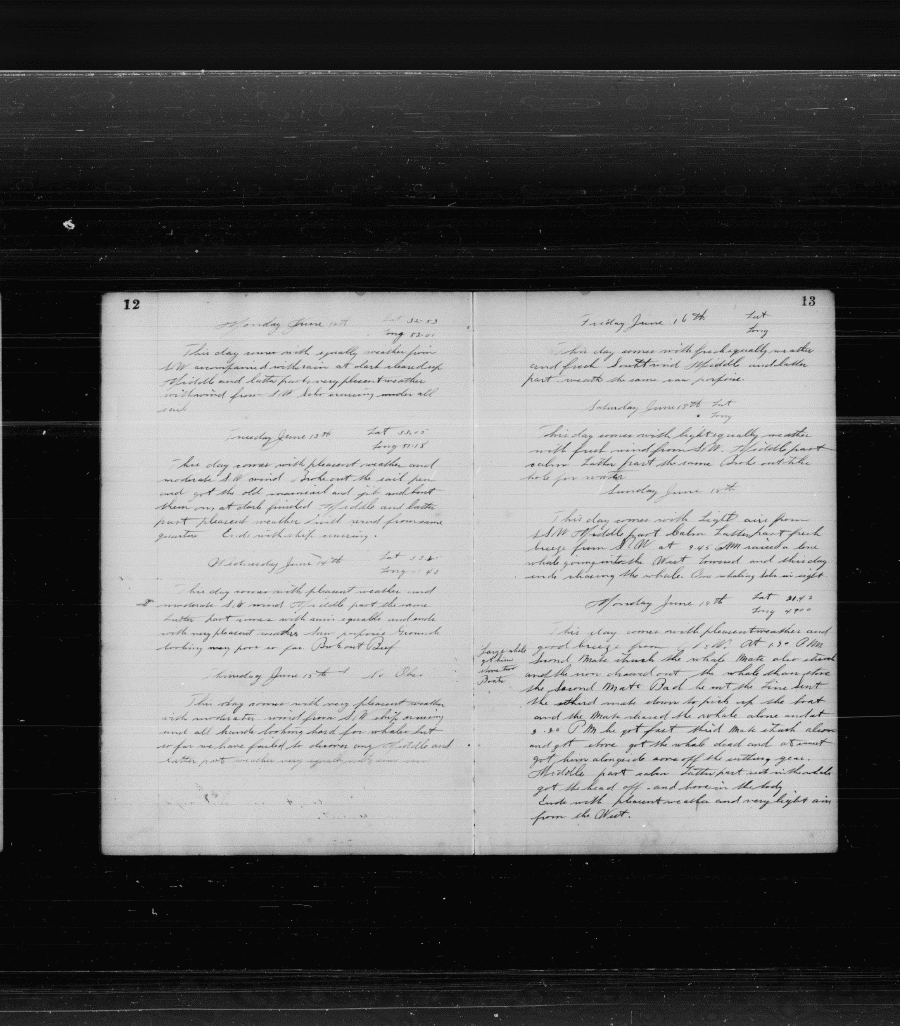 12
Monday June 12th Lat 32-53
Long 52-01
This day comes with squally weather from
S.W accompanied with rain at dark cleared up
Middle and latter part very plesent weather
with wind from S.W Sobs cruising under all
sail
Tuesday June 13th Lat 33-05
Long 51-18
This day comes with pleasent weather and
moderate S.W wind Broke out the sail pen
and got the old mainsail and jib and bent
them on, at dark finished Middle and latter
part pleasent weather with wind from same
quarter Ends with ship cruising.
Wednesday June 14th Lat
Long 43
This day comes with pleasent weather and
moderate S.W wind Middle part the same
Latter part comes with rain squalls and ends
with very pleasent weather Same porpoise Grounds
looking very poor so far. Broke out Beef
Thursday June 15th No Obs.
This day comes with very pleasent weather
with moderate wind from S.W ship cruising
and all hands looking hard for whales but
so far we have failed to discover any Middle and
Latter part weather very squally
13
Friday June 16th Lat
Long
This day comes with fresh squally weather
and fresh South wind Middle and latter
part weath the same saw porpoise.
Saturday June 17th Lat
Long
This day comes with light squally weather
with fresh wind from S.W. Middle part
calm Latter part the same Broke out the
hole for water
Sunday June 18th
This day comes with Light airs from
S.S.W Middle part Calm Latter part fresh
breeze from S.W at 9.45 AM raised a lone
whale going into the West lowered and this day
ends chasing the whale. One whaling bark in sight
Monday June 19th Lat 31.42
Long 49.00
This day comes with pleasent weather and
good breeze from W. At 1.30 P M
Second Mate struck the whale Mate also struck
and the iron drawed out the whale then stove
the Second Mate's Boat he cut the Line sent
the third mate down to pick up the boat
and the Mate chased the whale alone and at
3.30 P M he got fast third Mate struck also
and got stove got the whale dead and at sunset
got him alongside tore off the cutting gear.
Middle part calm Latter part cut in the whale
got the head off and bore in the body
Ends with pleasent weather and very light airs
from the West.
Large whale
got him
stove two
Boats